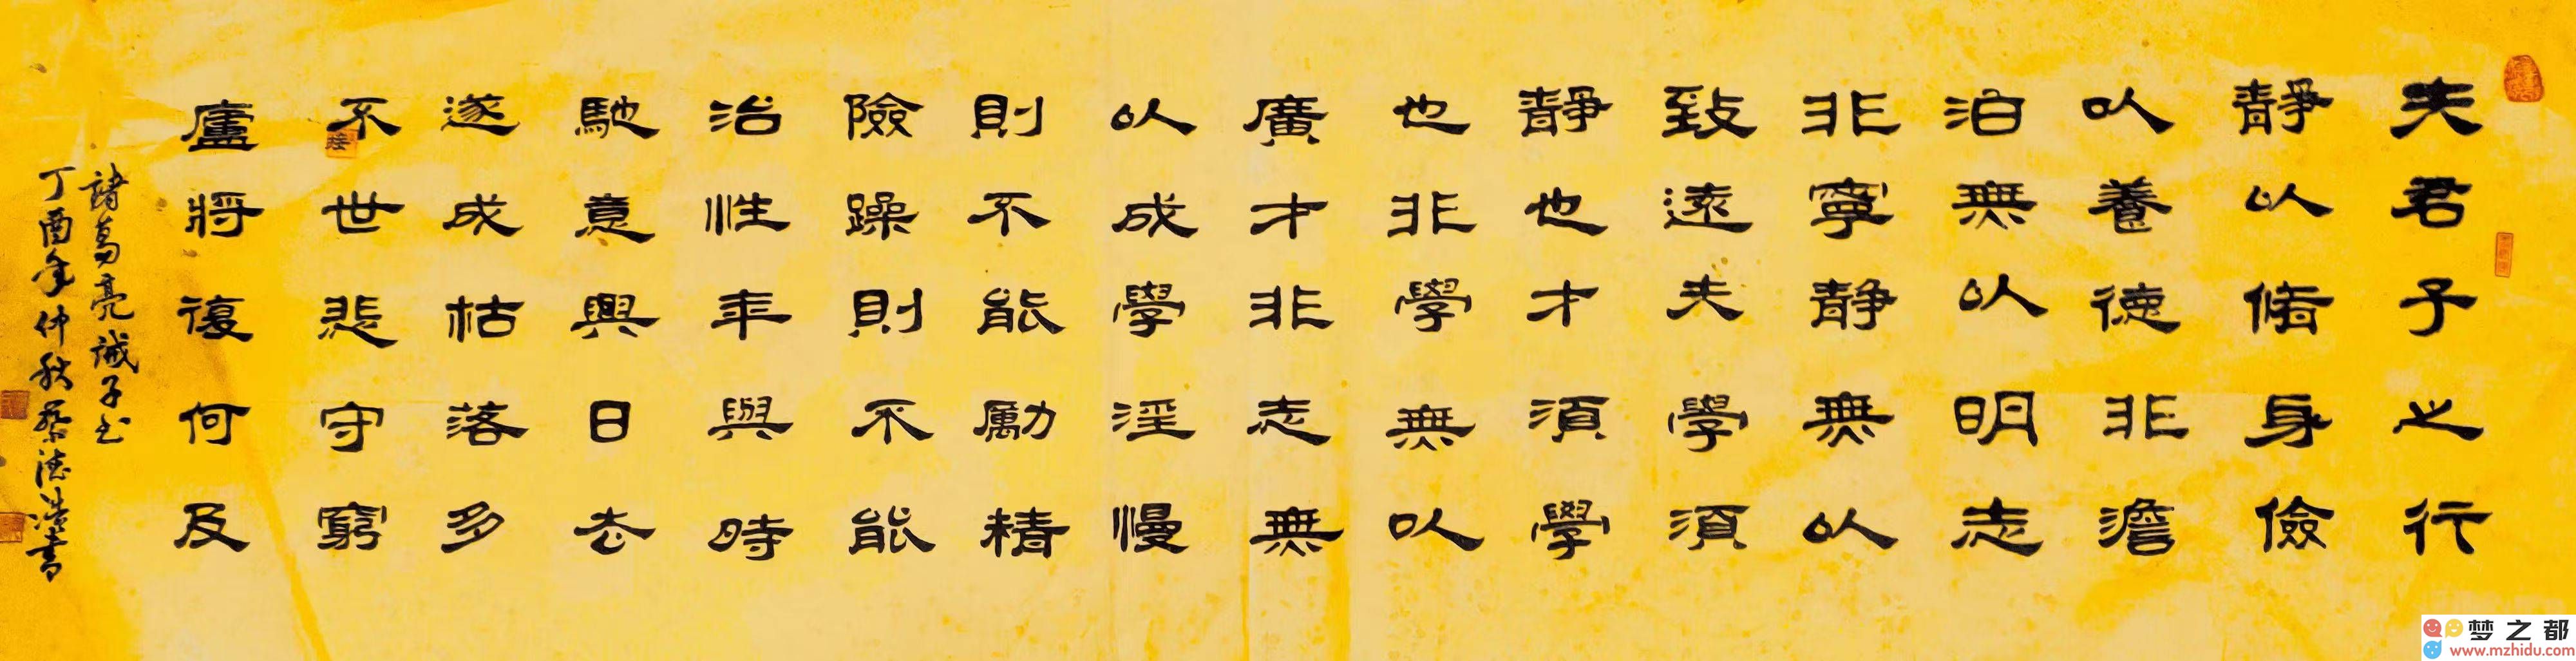 夫君子之行
靜以脩身儉
以養德非澹
泊無以明志
非寧靜無以
致遠夫學須
靜也才須學
也非學無以
廣才非志無
以成學淫慢
則不能勵精
險躁則不能
治性年與時
馳意與日去
遂成枯落多
不世悲守窮
接
廬將復何及
諸葛亮誡子书
丁酉年仲秋蔡德浩書
梦之都
www.mzhidu.com